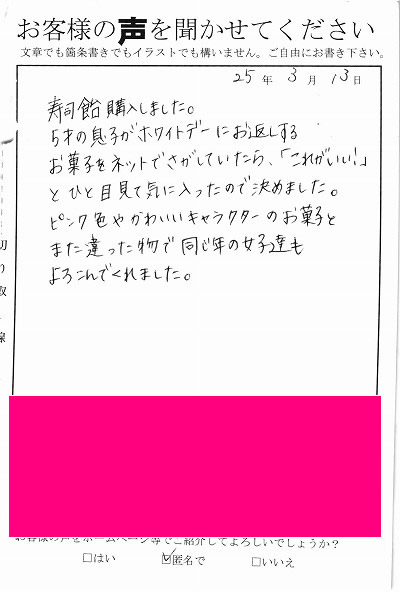 お客様の声を聞かせてください
文章でも箇条書きでもイラストでも構いません。ご自由にお書き下さい。
25年 3月 13日
寿司飴購入しました。
5才の息子がホワイトデーにお返しする
お菓子をネットでさがしていたら、「これがいい!」
とひと目見て気に入ったので決めました。
ピンク色やかわいいキャラクターのお菓子と
また違った物で同じ年の女子達も
よろこんでくれました。
切り取り線
お客様の声をホームページ等でご紹介してよろしいでしょうか?
□はい ☑匿名で □いいえ